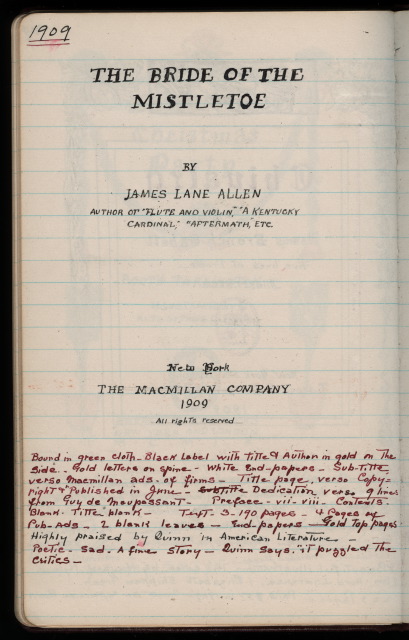 1909
THE BRIDE OF THE
MISTLETOE
BY
JAMES LANE ALLEN
AUTHOR OF "FLUTE AND VIOLIN," "A KENTUCKY
CARDINAL," "AFTERMATH," ETC.
New York
THE MACMILLAN COMPANY
1909
All rights reserved
Bound in green cloth - Black Label with title & Author in gold on The
Side - Gold letters on spine - White End-papers - Sub-Title
verso Macmillan ads. of firms - Title page, verso Copy-
right & "Published in June - Subtitle Dedication verso 9 lines
from Guy de Maupassant - Preface - vii-viii - Contents -
Blank - Title blank - Text - 3-190 pages - 4 Pages of
Pub-Ads - 2 blank leaves - End-papers - Gold Top pages
Highly praised by Quinn in American Literature -
Poetic - Sad - A fine story - Quinn says. "it puzzled the
Critics -